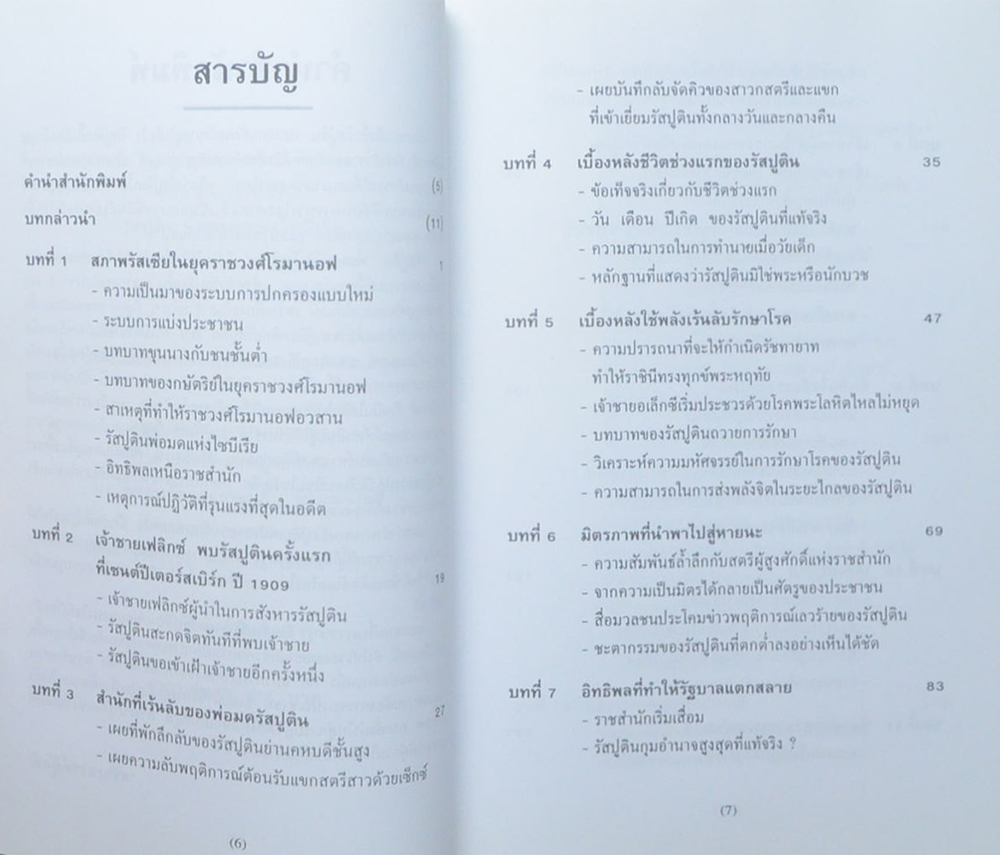 สารบัญ
คำนำสำนักพิมพ์ (5)
บทกล่าวนำ (11)
บทที่ 1 สภาพรัสเซียในยุคราชวงศ์โรมานอฟ 1
- ความเป็นมาของระบบการปกครองแบบใหม่
- ระบบการแบ่งประชาชน
- บทบาทขุนนางกับชนชั้นต่ำ
- บทบาทของกษัตริย์ในยุคราชวงศ์โรมานอฟ
- สาเหตุที่ทำให้ราชวงศ์โรมานอฟอวสาน
- รัสปูตินพ่อมดแห่งไซบีเรีย
- อิทธิพลเหนือราชสำนัก
- เหตุการณ์ปฏิวัติที่รุนแรงที่สุดในอดีต
บทที่ 2 เจ้าชายเฟลิกซ์ พบรัสปูตินครั้งแรก
ที่เซนต์ปีเตอร์สเบิร์ก ปี 1909 19
- เจ้าชายเฟลิกซ์ผู้นำในการสังหารรัสปูติน
- รัสปูตินสะกดจิตทันทีที่พบเจ้าชาย
- รัสปูตินขอเข้าเฝ้าเจ้าชายอีกครั้งหนึ่ง
บทที่ 3 สำนักที่เร้นลับของพ่อมดรัสปูติน 27
- เผยที่พักลึกลับของรัสปูตินย่านคหบดีชั้นสูง
- เผยความลับพฤติการณ์ต้อนรับแขกสตรีสาวด้วยเซ็กซ์
(6)
- เผยบันทึกลับจัดคิวของสาวกสตรีและแขก
ที่เข้าเยี่ยมรัสปูตินทั้งกลางวันและกลางคืน
บทที่ 4 เบื้องหลังชีวิตช่วงแรกของรัสปูติน 35
- ข้อเท็จจริงเกี่ยวกับชีวิตช่วงแรก
- วัน เดือน ปีเกิด ของรัสปูตินที่แท้จริง
- ความสามารถในการทำนายเมื่อวัยเด็ก
- หลักฐานที่แสดงว่ารัสปูตินมิใช่พระหรือนักบวช
บทที่ 5 เบื้องหลังใช้พลังเร้นลับรักษาโรค 47
- ความปรารถนาที่จะให้กำเนิดรัชทายาท
ทำให้ราชินีทรงทุกข์พระหฤทัย
- เจ้าชายอเล็กซีเริ่มประชวรด้วยโรคพระโลหิตไหลไม่หยุด
- บทบาทของรัสปูตินถวายการรักษา
- วิเคราะห์ความมหัศจรรย์ในการรักษาโรคของรัสปูติน
- ความสามารถในการส่งพลังจิตในระยะไกลของรัสปูติน
บทที่ 6 มิตรภาพที่นำพาไปสู่หายนะ 69
- ความสัมพันธ์ล้ำลึกกับสตรีผู้สูงศักดิ์แห่งราชสำนัก
- จากความเป็นมิตรได้กลายเป็นศัตรูของประชาชน
- สื่อมวลชนประโคมข่าวพฤติการณ์เลวร้ายของรัสปูติน
- ชะตากรรมของรัสปูตินที่ตกต่ำลงอย่างเห็นได้ชัด
บทที่ 7 อิทธิพลที่ทำให้รัฐบาลแตกสลาย 83
- ราชสำนักเริ่มเสื่อม
- รัสปูตินกุมอำนาจสูงสุดที่แท้จริง ?
(7)